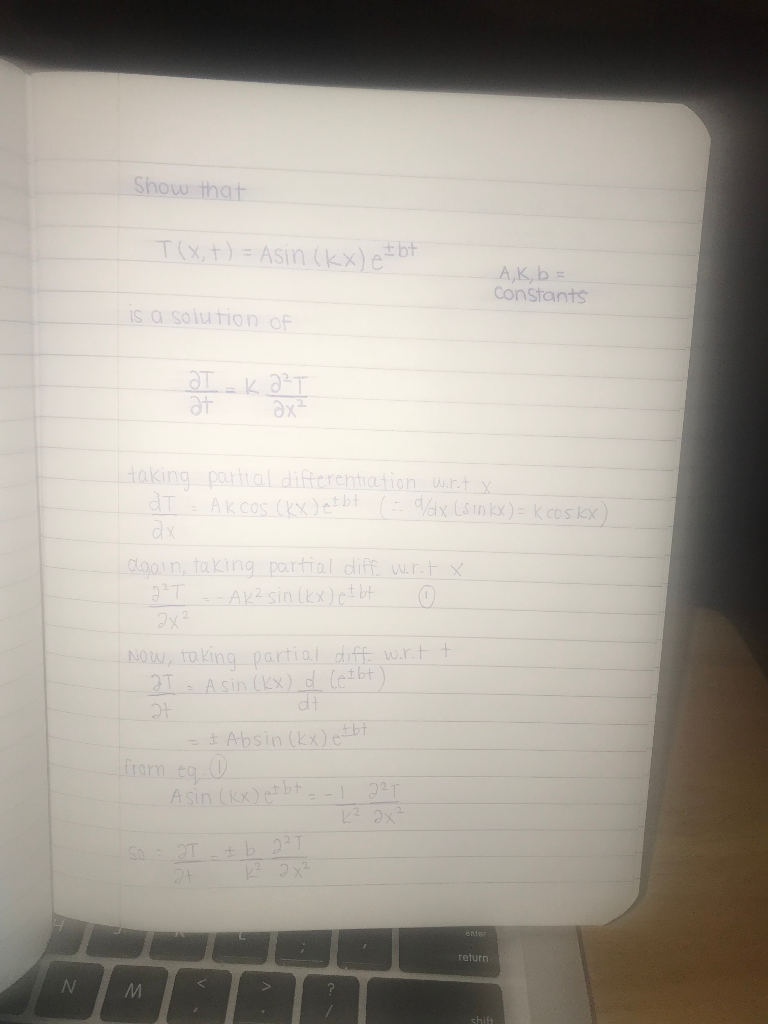 Show that
T(x,t) = Asin(kx)e^±bt
A,K,b =
constants
is a solution of
∂T/∂t = K ∂²T/∂x²
taking partial differentiation w.r.t x
∂T/∂x = AKcos(kx)e^±bt (∴ d/dx(sinkx)= kcoskx)
again, taking partial diff. w.r.t x
∂²T/∂x² = -AK²sin(kx)e^±bt ①
Now, taking partial diff. w.r.t t
∂T/∂t = Asin(kx) d/dt (e^±bt)
= ± Absin(kx)e^±bt
from eq. ①
Asin(kx)e^±bt = -1/k² ∂²T/∂x²
so : ∂T/∂t = ± b/k² ∂²T/∂x²
enter
return
N M < , > . ? /
shift